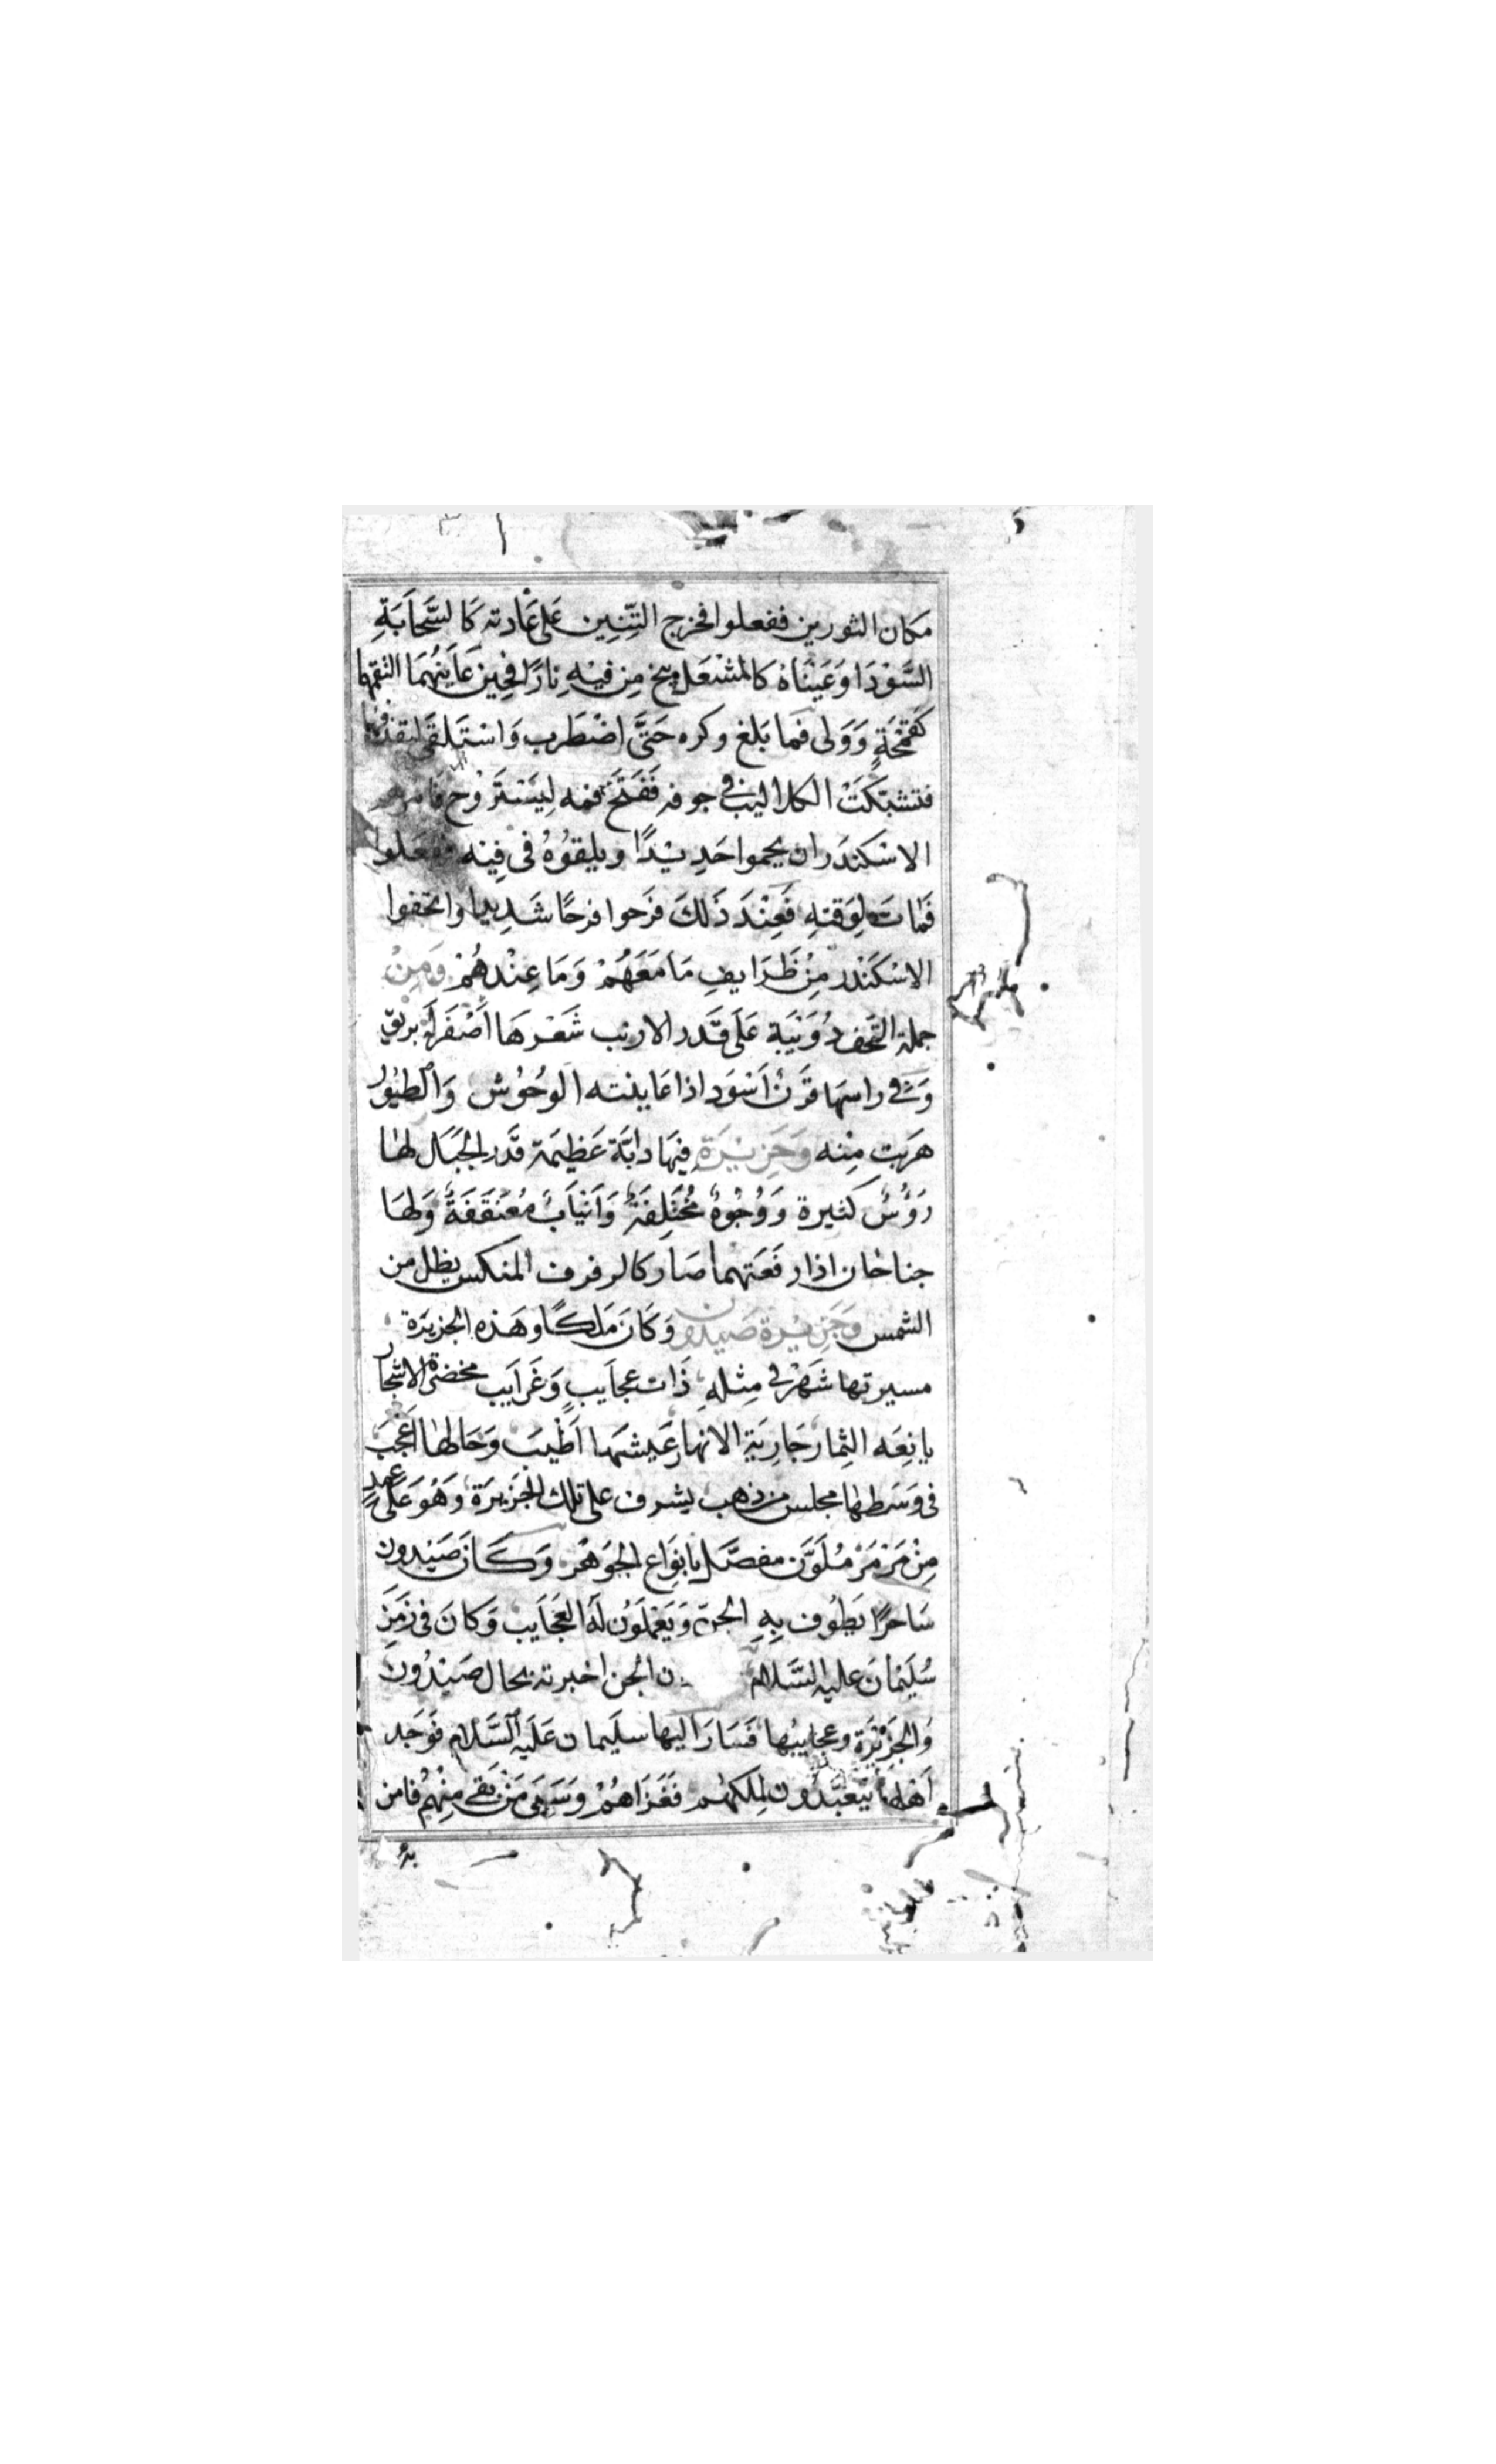 مكان الثورين ففعلوا فخرج التِّنِين عَلى عَادته كَالسَّحَابَةِ
السَّوْدَا وَعَيْنَاهُ كالمشْعَل ويخ مِن فيْهِ نارًا فحِين عَاينهُمَا التقمها
كفتْحَةٍ وَوَلى فما بَلغ وكره حَتَّى اضْطَرب وَاسْتَلقَى ليقذفهُا
فتشبّكَتْ الكلاليب فى جوفه فَفَتَحَ فمه لِيَسْتَرْوح فامرهم
الاسْكندَر ان يحموا حَدِيْدًا ويلقوُهُ فى فِيْه ففعَلوا
فَمات لِوَقتهِ فَعِنْدَ ذَلكَ فرَحوا فرحًا شَدِيدا واتحفوا
الاسْكَنْدر مِنْ ظَرَايفِ مَا مَعَهُمْ وَمَا عِنْدهُمْ وَمِنْ
جملة التَحَف دُوَيْبَة عَلَى قَدر الارنب شَعْرهَا اَصْفَر لَهُ بريق
وَفى راسهَا قَرْنٌ اَسْوَد اذا عَاينته الوحُوش وَالطيُور
هَرَبت مِنه وَجَزِيْرَة فِيهَا دابَّة عَظِيمَة قَدر الجبَال لها
رُؤُسٌ كثيرة وَوُجُوهٌ مُخْتَلِفَةٌ وَانْيَابٌ مُعَنقَفَةٌ وَلهَا
جناحان اذا رفَعَتهما صَار كالرفرف المنكس يظل من
الشمس وَجَزِيْرة صَيدون وَكَانَ مَلكًا وهَذه الجزيَرة
مسيرتها شَهْر فى مِثلهِ ذَات عجَايبٍ وَغَرَايَب مخضرة الاشجار
يانِعَه الثِمار جَاريَة الانهار عَيشهَا اَطْيبَ وَحَالها اَعْجَبَ
فى وَسَطها مجلس من ذهب يشرف على تلك الجَزيرَة وَهُوَ عَلى عمدٍ
مِنْ مَرْمَرْ مُلَوَّن مفصَّل بانوَاع الجوَهَر وَكَانَ صَيْدون
سَاحرًا يَطُوف بِهِ الجن وَيَعْملَوُن لَهُ العَجَايبَ وَكانَ فى زَمَنِ
سُلَيْمانَ عليه السَّلام ن الجن اخبرته بحال صَيْدُون
وَالجزَيْرَة وعجايبها فَسَارَ اليها سلَيمان عَلَيه السَّلام فوَجَد
اَهْلهَا يَتعَبَّدُون لملكهُم فَغَزَاهُمْ وَسَبَى مَنْ بَقى مِنْهُم فامن